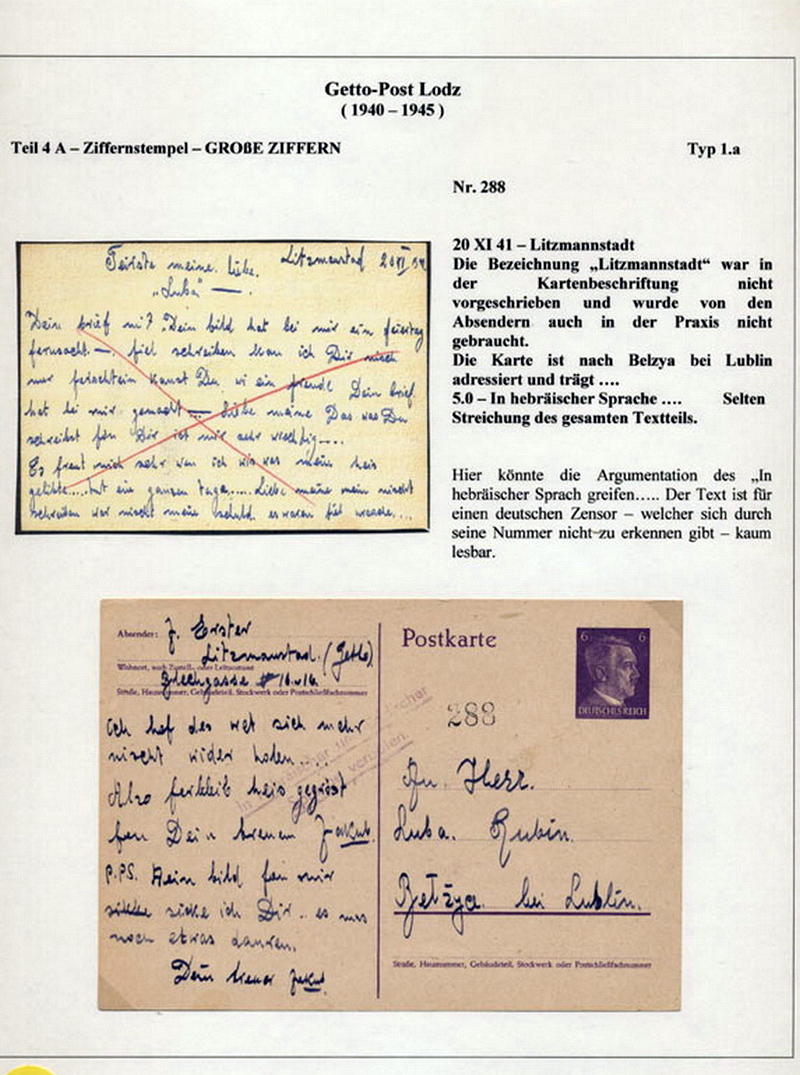 Getto-Post Lodz
( 1940 – 1945 )
Teil 4 A – Ziffernstempel – GROßE ZIFFERN Typ 1.a
Nr. 288
Teirste meine liebe. Litzmanstad 20 XI
„Luba" —.
Dein brief mit Dein bild hat bei mir ein feiertag
ferursacht. —. fiel schreiben kan ich Dir nich
nur ferschtein kanst Du wi ein freude Dein brief
hat bei mir gemacht — Liebe meine Das was Du
schreibst fon Dir ist mir sehr wichtig —...
Es freut mich sehr wen ich wis was mein heis
gelibte.....tut ein ganzen tage..... Liebe meine mein nischt
schreiben war nischt mein schuld. es waren fiel
20 XI 41 – Litzmannstadt
Die Bezeichnung „Litzmannstadt“ war in
der Kartenbeschriftung nicht
vorgeschrieben und wurde von den
Absendern auch in der Praxis nicht
gebraucht.
Die Karte ist nach Belzya bei Lublin
adressiert und trägt ….
5.0 – In hebräischer Sprache …. Selten
Streichung des gesamten Textteils.
Hier könnte die Argumentation des „In
hebräischer Sprach greifen….. Der Text ist für
einen deutschen Zensor – welcher sich durch
seine Nummer nicht zu erkennen gibt – kaum
lesbar.
Absender: J. Erster
Litzmanstad. (Getto)
Wohnort, auch Zustell- oder Leitpostamt
Blechgasse
Straße, Hausnummer, Gebäudeteil, Stockwerk oder Postschließfachnummer
Ich hof des wet sich mehr
nischt wider holen....
Also ferbleib heis gegrüst
fon Dein treuem Jakub.
P.PS. Mein bild fon mir
sicke ich Dir.. es mus
noch etwas dauren.
Dein treuer Jakub
Postkarte
6 6
DEUTSCHES REICH
288
An Herr.
Luba. Rubin.
Bełżyce. bei Lublin.
Straße, Hausnummer, Gebäudeteil, Stockwerk oder Postschließfachnummer